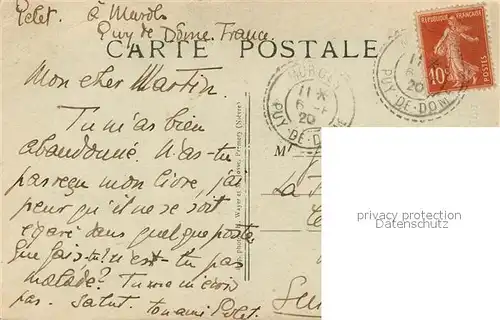 Polet. à Murols
Puy de Dôme. France.
CARTE POSTALE
Mon cher Martin.
Tu m'as bien
abandonné. N'as-tu
pas reçu mon livre, j'ai
peur qu'il ne se soit
égaré dans quelque poste
que fais-tu? n'est-tu pas
malade? Tu ne m'écris
pas. Salut. ton ami Polet.
REPUBLIQUE FRANÇAISE
10c
POSTES
11
6
20
PUY-DE-DOME
MUROLS
11 *
6
20
PUY-DE-DOME
M
La
privacy protection
Datenschutz